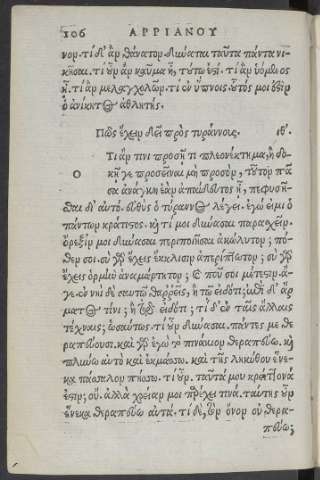 106 ΑΡΡΙΑΝΟΥ
νον. τί δ' ἂν θάνατον δύναται ταῦτα πάντα νι-
κῆσαι. τί οὖν ἂν καῦμα ᾖ, τούτῳ ἐστί. τί ἂν ὑόμενος
ᾖ. τί ἂν μελαγχολῶν. τί ἐν ὕπνοις. οὗτός μοι ἐστὶν
ὁ ἀνίκητος ἀθλητής.
Πῶς ἔχειν δεῖ πρὸς τυράννους. ιθ'.
Τι ἄν τινι προσῇ τι πλεονέκτημα, ἢ δο-
Ο κῇ γε προσεῖναι μὴ προσόν, τοῦτον πᾶ
σα ἀνάγκη ἐὰν ἀπαίδευτος ᾖ, πεφυσῆ-
σθαι δι' αὐτό. εὐθὺς ὁ τύραννος λέγει. ἐγώ εἰμι ὁ
πάντων κράτιστος. καὶ τί μοι δύνασαι παρασχεῖν.
ὄρεξίν μοι δύνασαι περιποιῆσαι ἀκώλυτον; πό-
θεν σοι. σὺ γὰρ ἔχεις ἔκκλισιν ἀπερίπτωτον; σὺ γὰρ
ἔχεις ὁρμὴν ἀναμάρτητον; καὶ ποῦ σοι μέτεστιν. ἄ-
γε. ἐν νηὶ δὲ σαυτῷ θαρρεῖς, ἢ τῷ εἰδότι; ἐπὶ δ' ἅρ
ματος τίνι; ἢ τῷ εἰδότι; τί δ' ἐν ταῖς ἄλλαις
τέχναις; ὡσαύτως. τί οὖν δύνασαι. πάντες με θε
ραπεύουσι. καὶ γὰρ ἐγὼ τὸ πινάκιον θεραπεύω. καὶ
πλύνω αὐτὸ καὶ ἐκμάσσω. καὶ τῆς ληκύθου ἕνε-
κα πάσσαλον πήσσω. τί οὖν. ταῦτά μου κρείττονά
ἐστιν; οὔ. ἀλλὰ χρείαν μοι παρέχει τινά. ταύτης οὖν
ἕνεκα θεραπεύω αὐτά. τί δέ; τὸν ὄνον οὐ θερα-
πεύω;